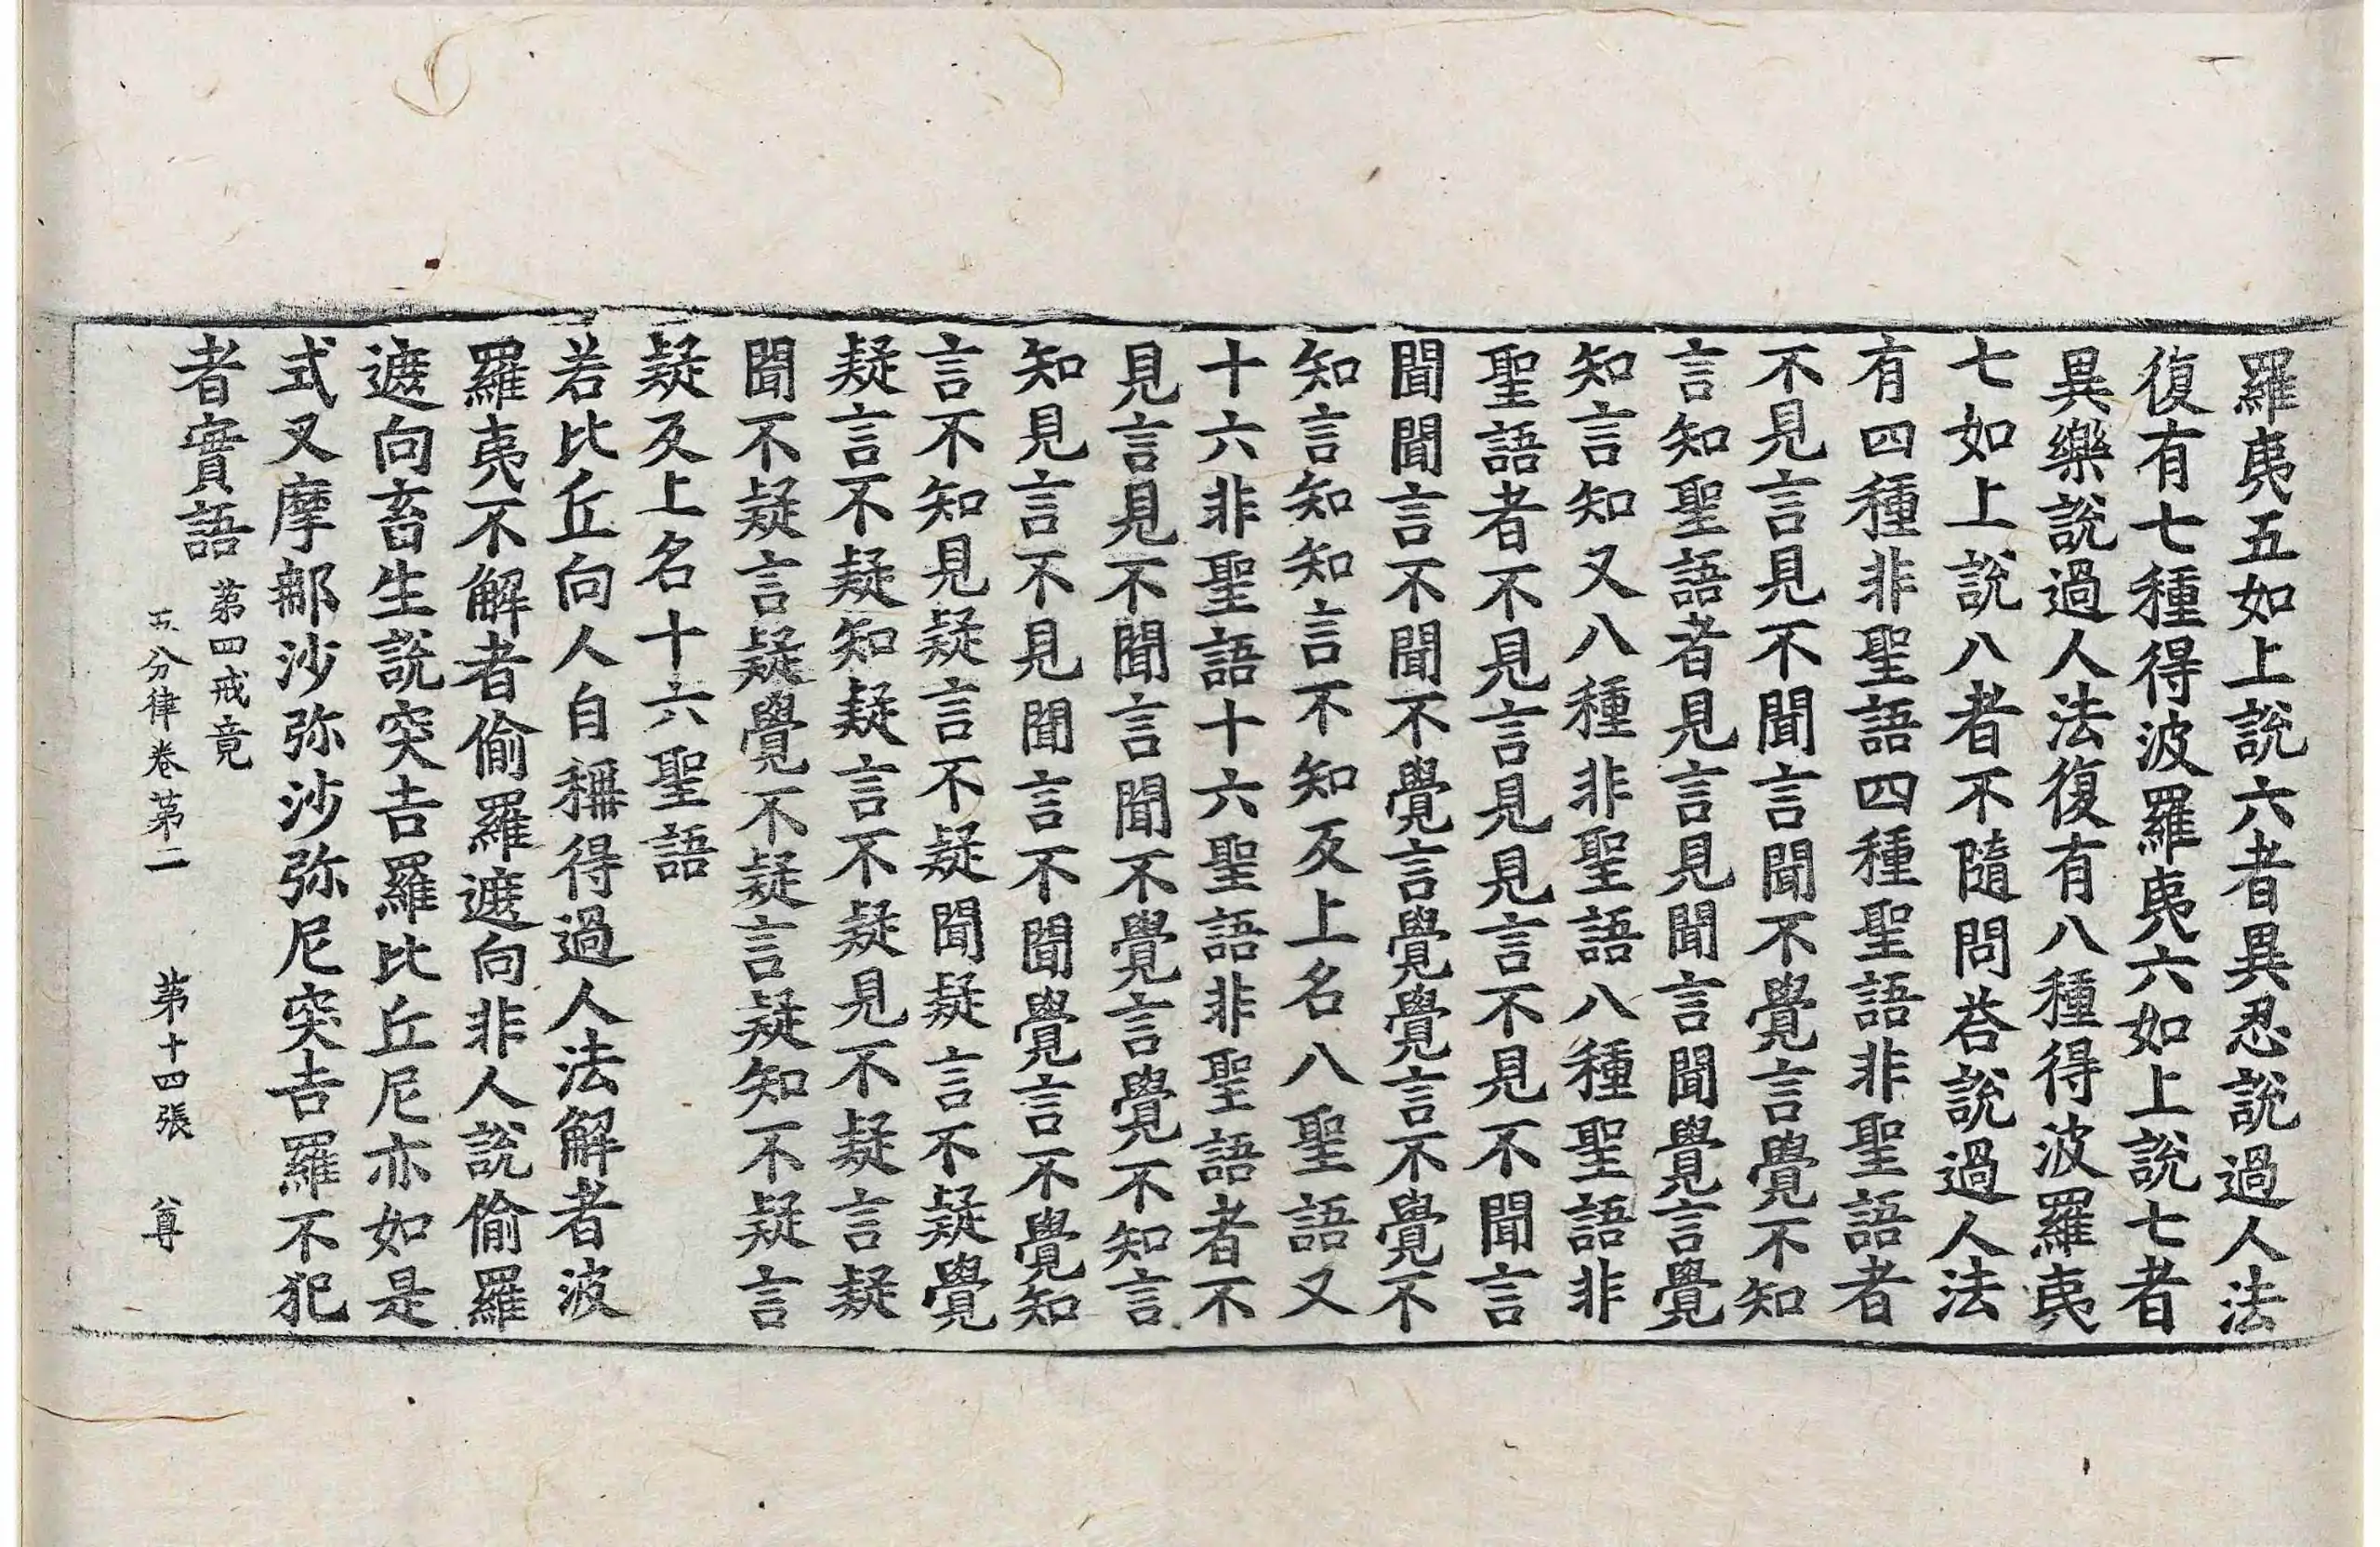 羅夷五如上說六者異忍說過人法
復有七種得波羅夷六如上說七者
異樂說過人法復有八種得波羅夷
七如上說八者不隨問荅說過人法
有四種非聖語四種聖語非聖語者
不見言見不聞言聞不覺言覺不知
言知聖語者見言見聞言聞覺言覺
知言知又八種非聖語八種聖語非
聖語者不見言見見言不見不聞言
聞聞言不聞不覺言覺覺言不覺不
知言知知言不知反上名八聖語又
十六非聖語十六聖語非聖語者不
見言見不聞言聞不覺言覺不知言
知見言不見聞言不聞覺言不覺知
言不知見疑言不疑聞疑言不疑覺
疑言不疑知疑言不疑見不疑言疑
聞不疑言疑覺不疑言疑知不疑言
疑反上名十六聖語
若比丘向人自稱得過人法解者波
羅夷不解者偷羅遮向非人說偷羅
遮向畜生說突吉羅比丘尼亦如是
式叉摩那沙弥沙弥尼突吉羅不犯
者實語 第四戒竟
五分律卷第二 第十四張 尊